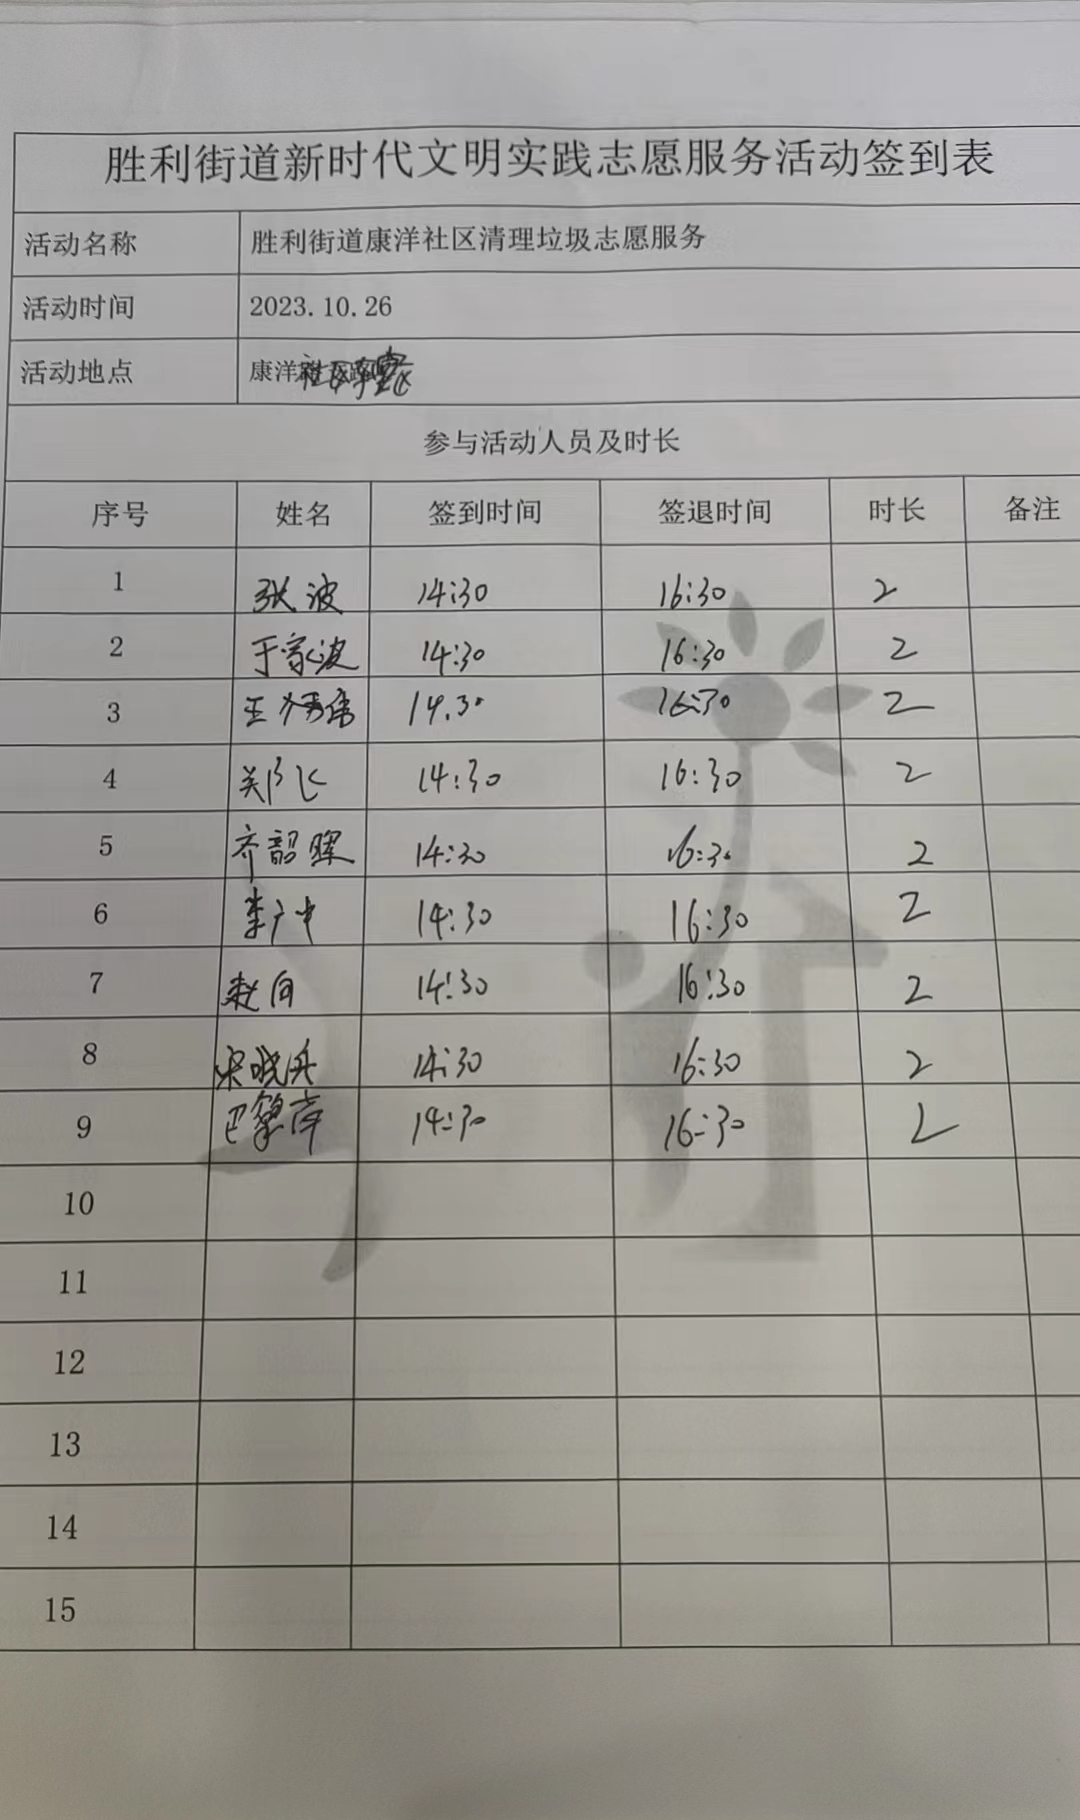 胜利街道新时代文明实践志愿服务活动签到表
活动名称 胜利街道康洋社区清理垃圾志愿服务
活动时间 2023.10.26
活动地点 康洋
参与活动人员及时长
序号 姓名 签到时间 签退时间 时长 备注
1 张波 14:30 16:30 2
2 于家波 14:30 16:30 2
3 王 14.30 16:30 2
4 郑飞 14:30 16:30 2
5 齐韶晖 14:30 16:30 2
6 李广中 14:30 16:30 2
7 赵向 14:30 16:30 2
8 宋晓丹 14:30 16:30 2
9 巴黎岸 14:30 16:30 2
10
11
12
13
14
15